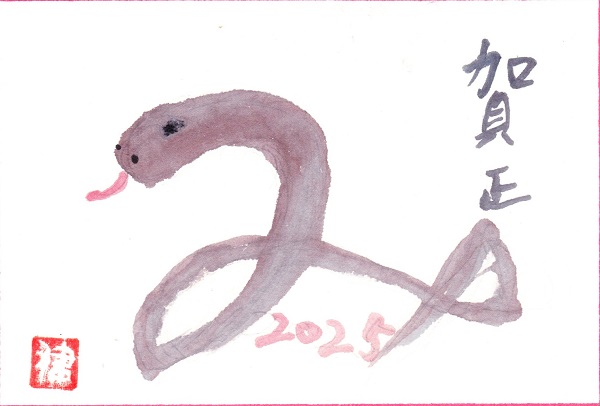 賀正
2025